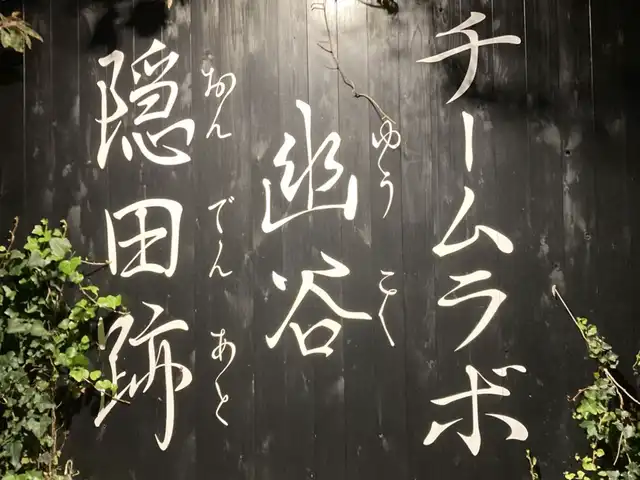 チームラボ
幽谷
ゆうこく
隠田跡
おんでんあと